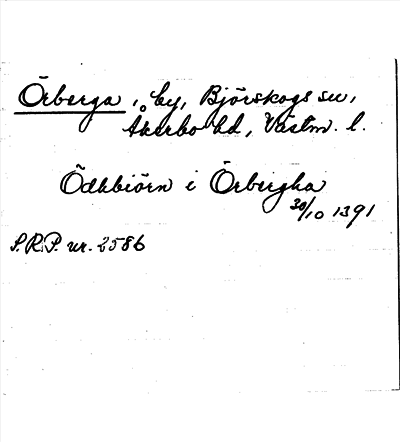 Örberga, by, Björskogs sn,
Åkerbo hd, Västm. l.
Ödhbiörn i Örbergha
30/10 1391
S.R.P. nr. 2586